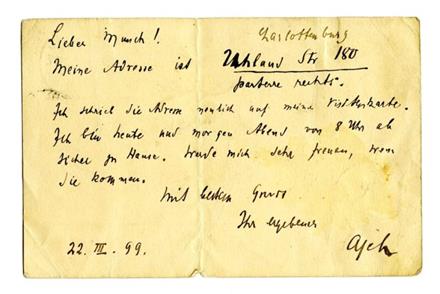 Charlottenburg
Lieber Munch!
Meine Adresse ist Uhland Str 180
parterre rechts.
Ich schrieb die Adresse neulich auf meine Visitenkarte.
Ich bin heute und morgen Abend von 8 Uhr ab
sicher zu Hause. Würde mich sehr freuen, wenn
Sie kommen.
Mit bestem Gruss
Ihr ergebener
22. III. 99.